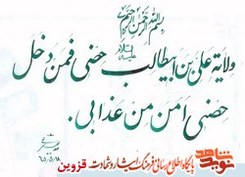 بسم الله الرحمن الرحیم
ولایة علی بن ابیطالب حصنی فمن دخل
علیه السلام
حصنی امن من عذابی.
نوید شاهد
پایگاه اطلاع رسانی فرهنگ ایثار و شهادت قزوین